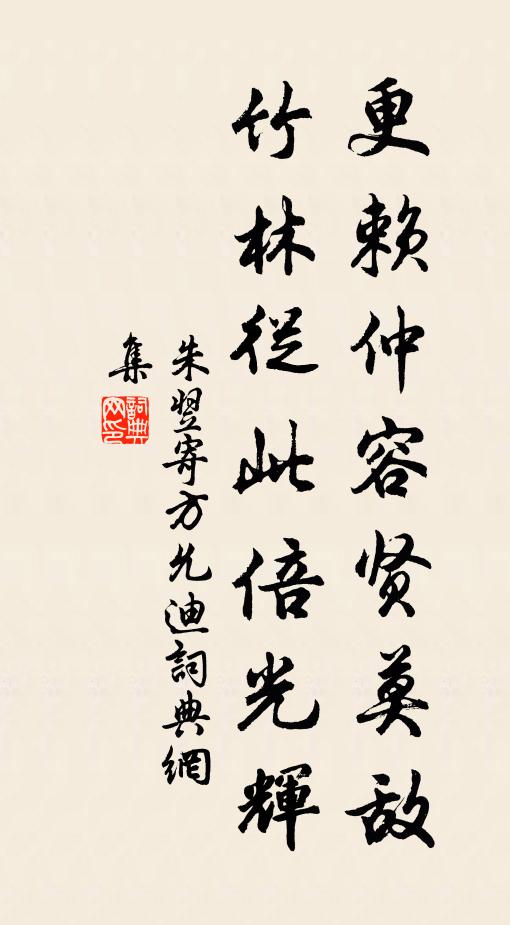 更赖仲容贤莫敌
竹林从此倍光輝
朱翌寄方允迪詞典網
集
詞典网印